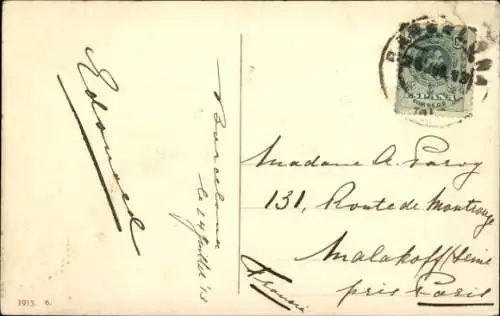 Edouard
Barcelona
le 24 Juillet '13
Madame A. Parvy
131, Route de Montrouge
Malakoff/Seine
près Paris
(France)
BARCELONA
ESPAÑA
CORREOS
1913. 6.